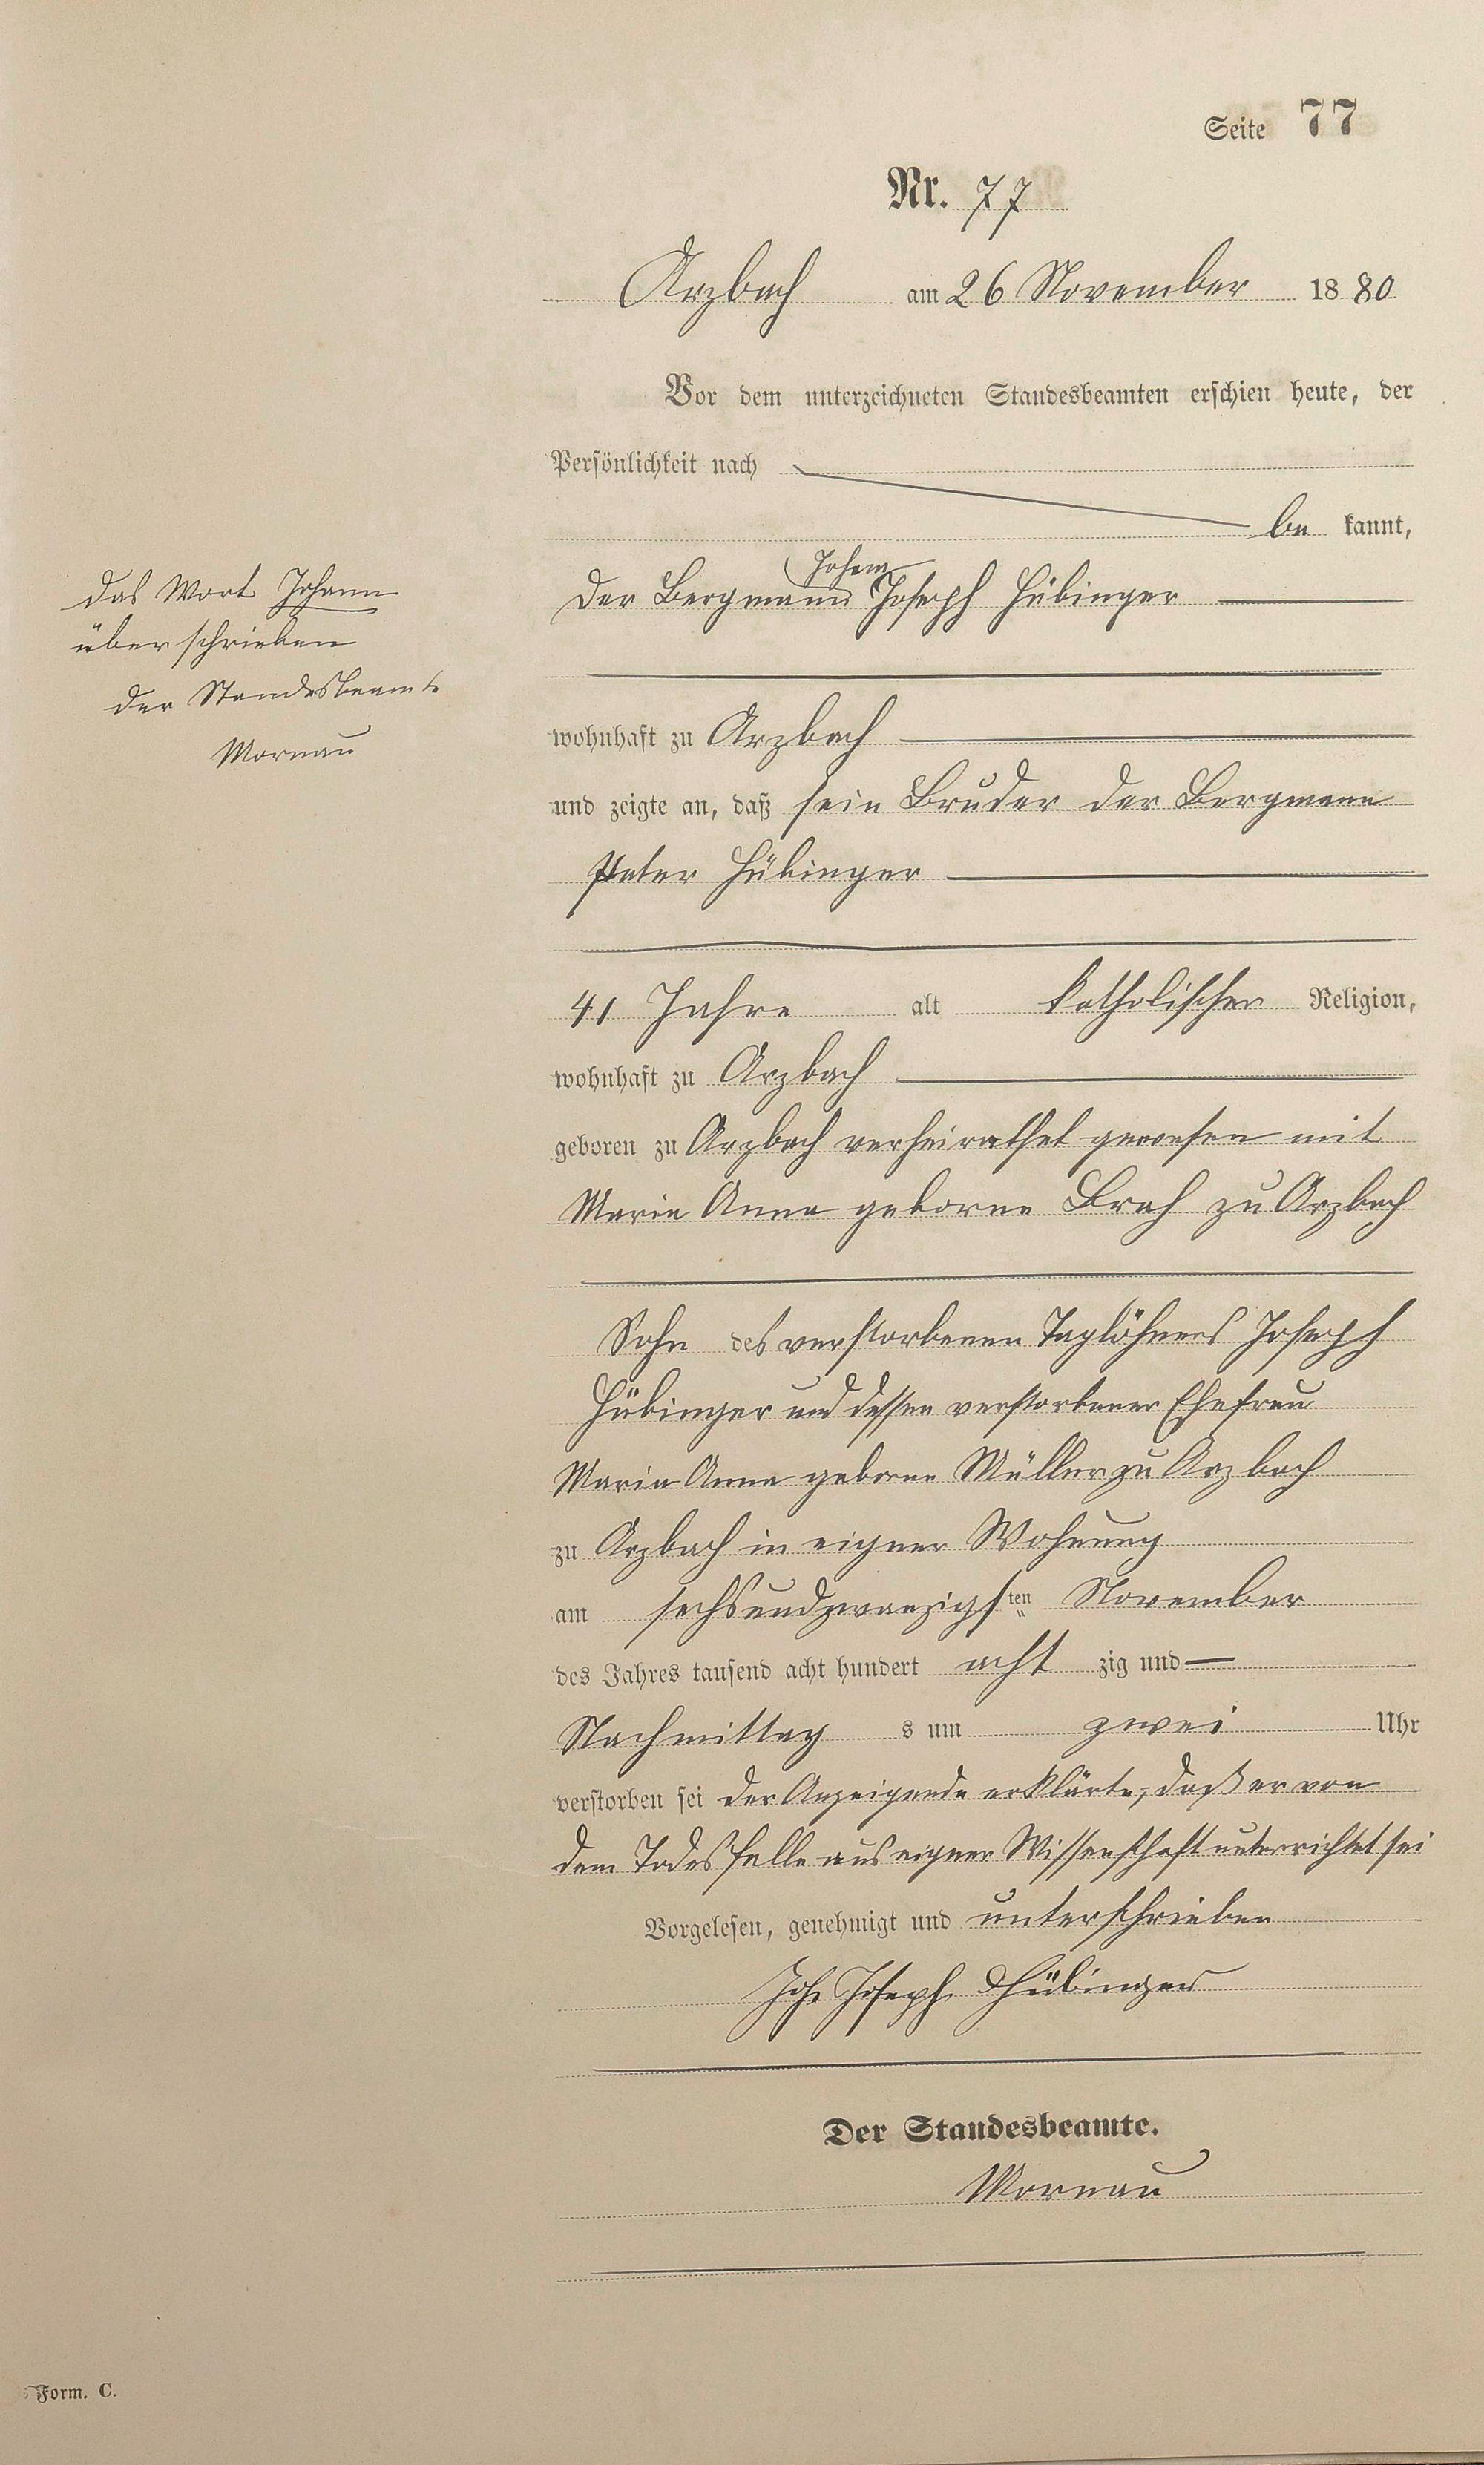 Seite 77
Nr. 77
Arzbach am 26 November 1880
Vor dem unterzeichneten Standesbeamten erschien heute, der
Persönlichkeit nach
be kannt,
Johann
der Bergmann Joseph Hübinger
das Wort Johann
überschrieben
der Standesbeamte
Mornau
wohnhaft zu Arzbach
und zeigte an, daß sein Bruder der Bergmann
Peter Hübinger
41 Jahre alt katholischer Religion,
wohnhaft zu Arzbach
geboren zu Arzbach verheirathet gewesen mit
Maria Anna geborne Brah zu Arzbach
Sohn des verstorbenen Taglöhners Joseph
Hübinger und dessen verstorbener Ehefrau
Maria Anna geborne Müller zu Arzbach
zu Arzbach in eigner Wohnung
am sechsundzwanzigsten November
des Jahres tausend acht hundert acht zig und
Nachmittag s um zwei Uhr
verstorben sei der Anzeigende erklärte, daß er von
dem Todesfalle aus eigner Wissenschaft unterrichtet sei
Vorgelesen, genehmigt und unterschrieben
Joh Joseph Hübinger
Der Standesbeamte.
Mornau
Form. C.